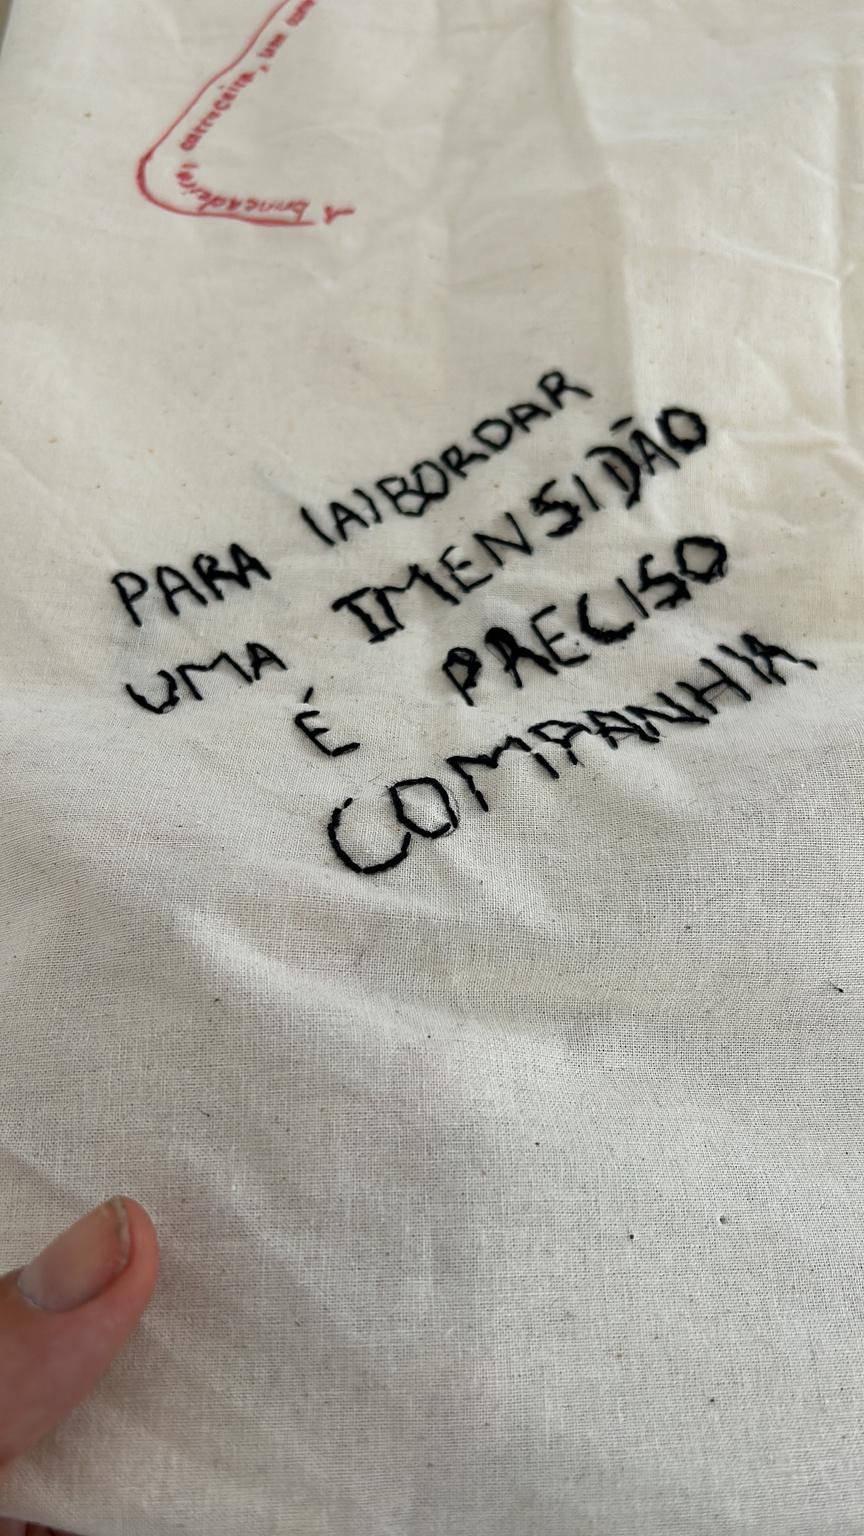 A brincadeira
carroceira, tem
PARA (A)BORDAR
UMA IMENSIDÃO
É PRECISO
COMPANHIA